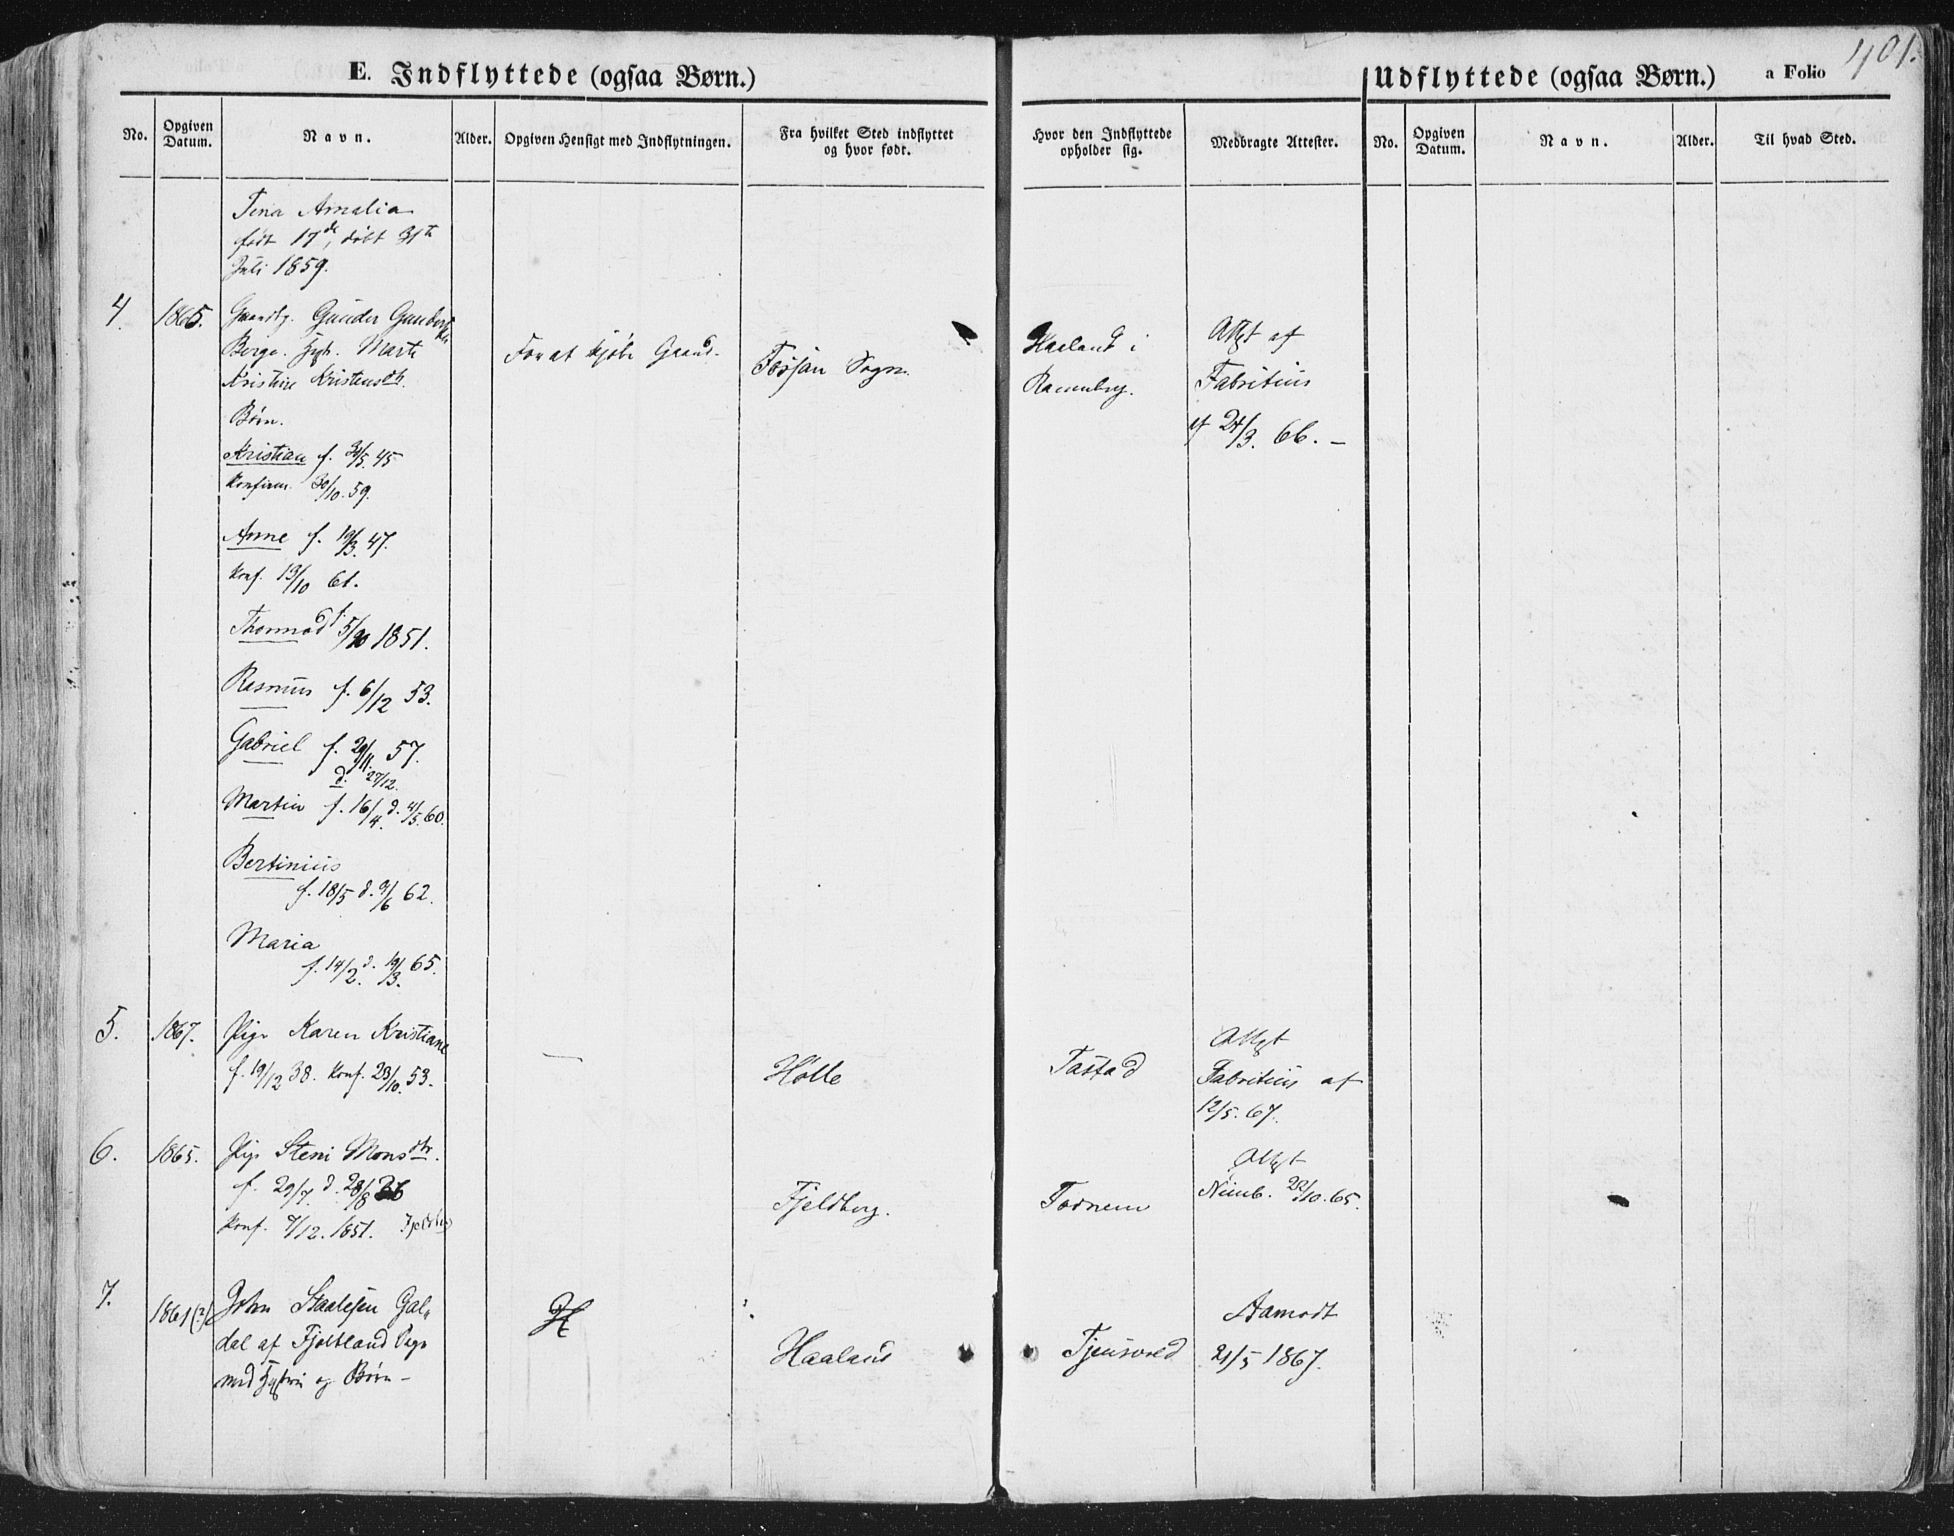 401.
E. Indflyttede (ogsaa Børn.)
Udflyttede (ogsaa Børn.) a Folio
No.
Opgiven Datum.
Navn.
Alder.
Opgiven Hensigt med Indflytningen.
Fra hvilket Sted indflyttet
og hvor født.
Hvor den Indflyttede
opholder sig.
Medbragte Attester.
No.
Opgiven Datum.
Navn.
Alder.
Til hvad Sted.
Tena Amalia
født 17de, døbt 31te
Juli 1859.
4. 1865. Gaardbg. Gunder
Berge. Marte
Kristine Kristensdtr.
Børn.
Kristian f. 31/5. 45
Konfirm. 30/10. 59.
Anne f. 19/3. 47.
Konf. 13/10 61.
Thormod f. 5/10 1851.
Rasmus f. 6/12 53.
Gabriel f. 29/11. 57.
d. 27/12.
Martin f. 16/4. d. 4/5. 60.
Bertinius
f. 18/5 d. 9/6 62.
Maria
f. 14/2. d. 19/3. 65.
For at kjøbe Gaard.
Fossan Sogn.
Haaland i
Attest af
Fabritius
af 24/3. 66. -
5. 1867. Pige Karen Kristiane
f. 19/12 38. Konf. 23/10. 53.
—
Holle
Tastad
Attest
Fabritius af
12/5. 67.
6. 1865. Pige Steni Monsdtr.
f. 29/7. d. 28/8 36
Konf. 7/12. 1851. Fjeldberg
Fjeldberg.
Tornem
Attest
22/10. 65.
7. 1861(?) John Staalesen Gal„
dal af Fjotland Præg
med Hustru og Børn -
Haaland
Tjensvold
Aamodt
21/5 1867.